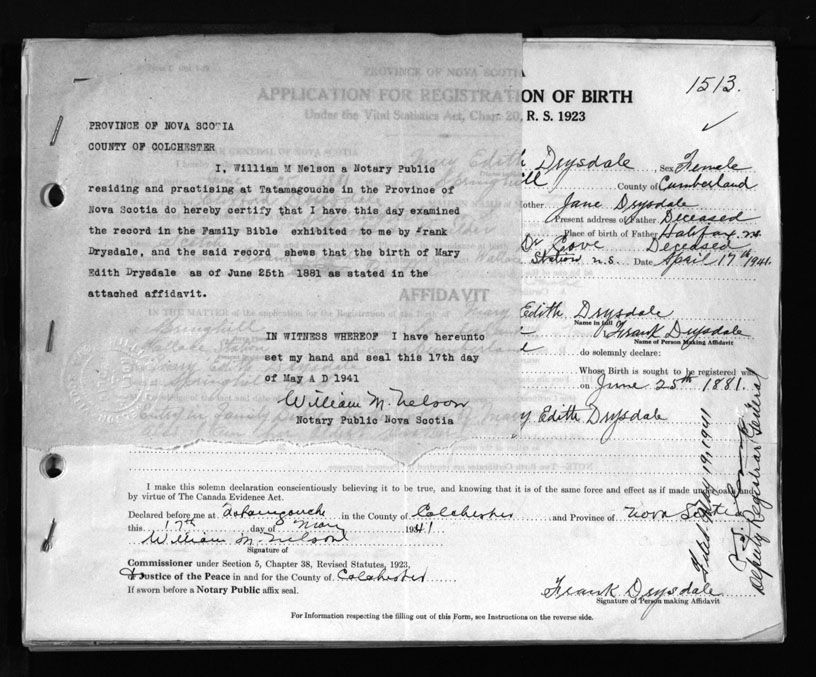 1513.
ON OF BIRTH
R. S. 1923
PROVINCE OF NOVA SCOTIA
COUNTY OF COLCHESTER
I, William M Nelson a Notary Public
residing and practising at Tatamagouche in the Province of
Nova Scotia do hereby certify that I have this day examined
the record in the Family Bible exhibited to me by Frank
Drysdale, and the said record shews that the birth of Mary
Edith Drysdale as of June 25th 1881 as stated in the
attached affidavit.
IN WITNESS WHEREOF I have hereunto
set my hand and seal this 17th day
of May A D 1941
William M. Nelson
Notary Public Nova Scotia
PROVINCE OF NOVA SCOTIA
APPLICATION FOR REGISTRATI
Under the Vital Statistics Act, Chap. 20,
AFFIDAVIT
Drysdale, Sex Female
County of Cumberland
Mother Jane Drysdale
Present address of Father Deceased
Place of birth of Father Halifax N.S.
Cove Deceased
Station N.S. Date April 17th 1941.
Edith Drysdale
Name in full
Frank Drysdale
Name of Person Making Affidavit
do solemnly declare:
Whose Birth is sought to be registered was
on June 25th 1881.
y Edith Drysdale
I make this solemn declaration conscientiously believing it to be true, and knowing that it is of the same force and effect as if made under oath and
by virtue of The Canada Evidence Act.
Declared before me at Tatamagouche in the County of Colchester and Province of Nova Scotia
this 17th day of May 1941
William M. Nelson
Signature of
Commissioner under Section 5, Chapter 38, Revised Statutes, 1923,
Justice of the Peace in and for the County of Colchester
If sworn before a Notary Public affix seal.
Frank Drysdale
Signature of Person making Affidavit
For Information respecting the filling out of this Form, see Instructions on the reverse side.
Filed May 19, 1941
Deputy Registrar General